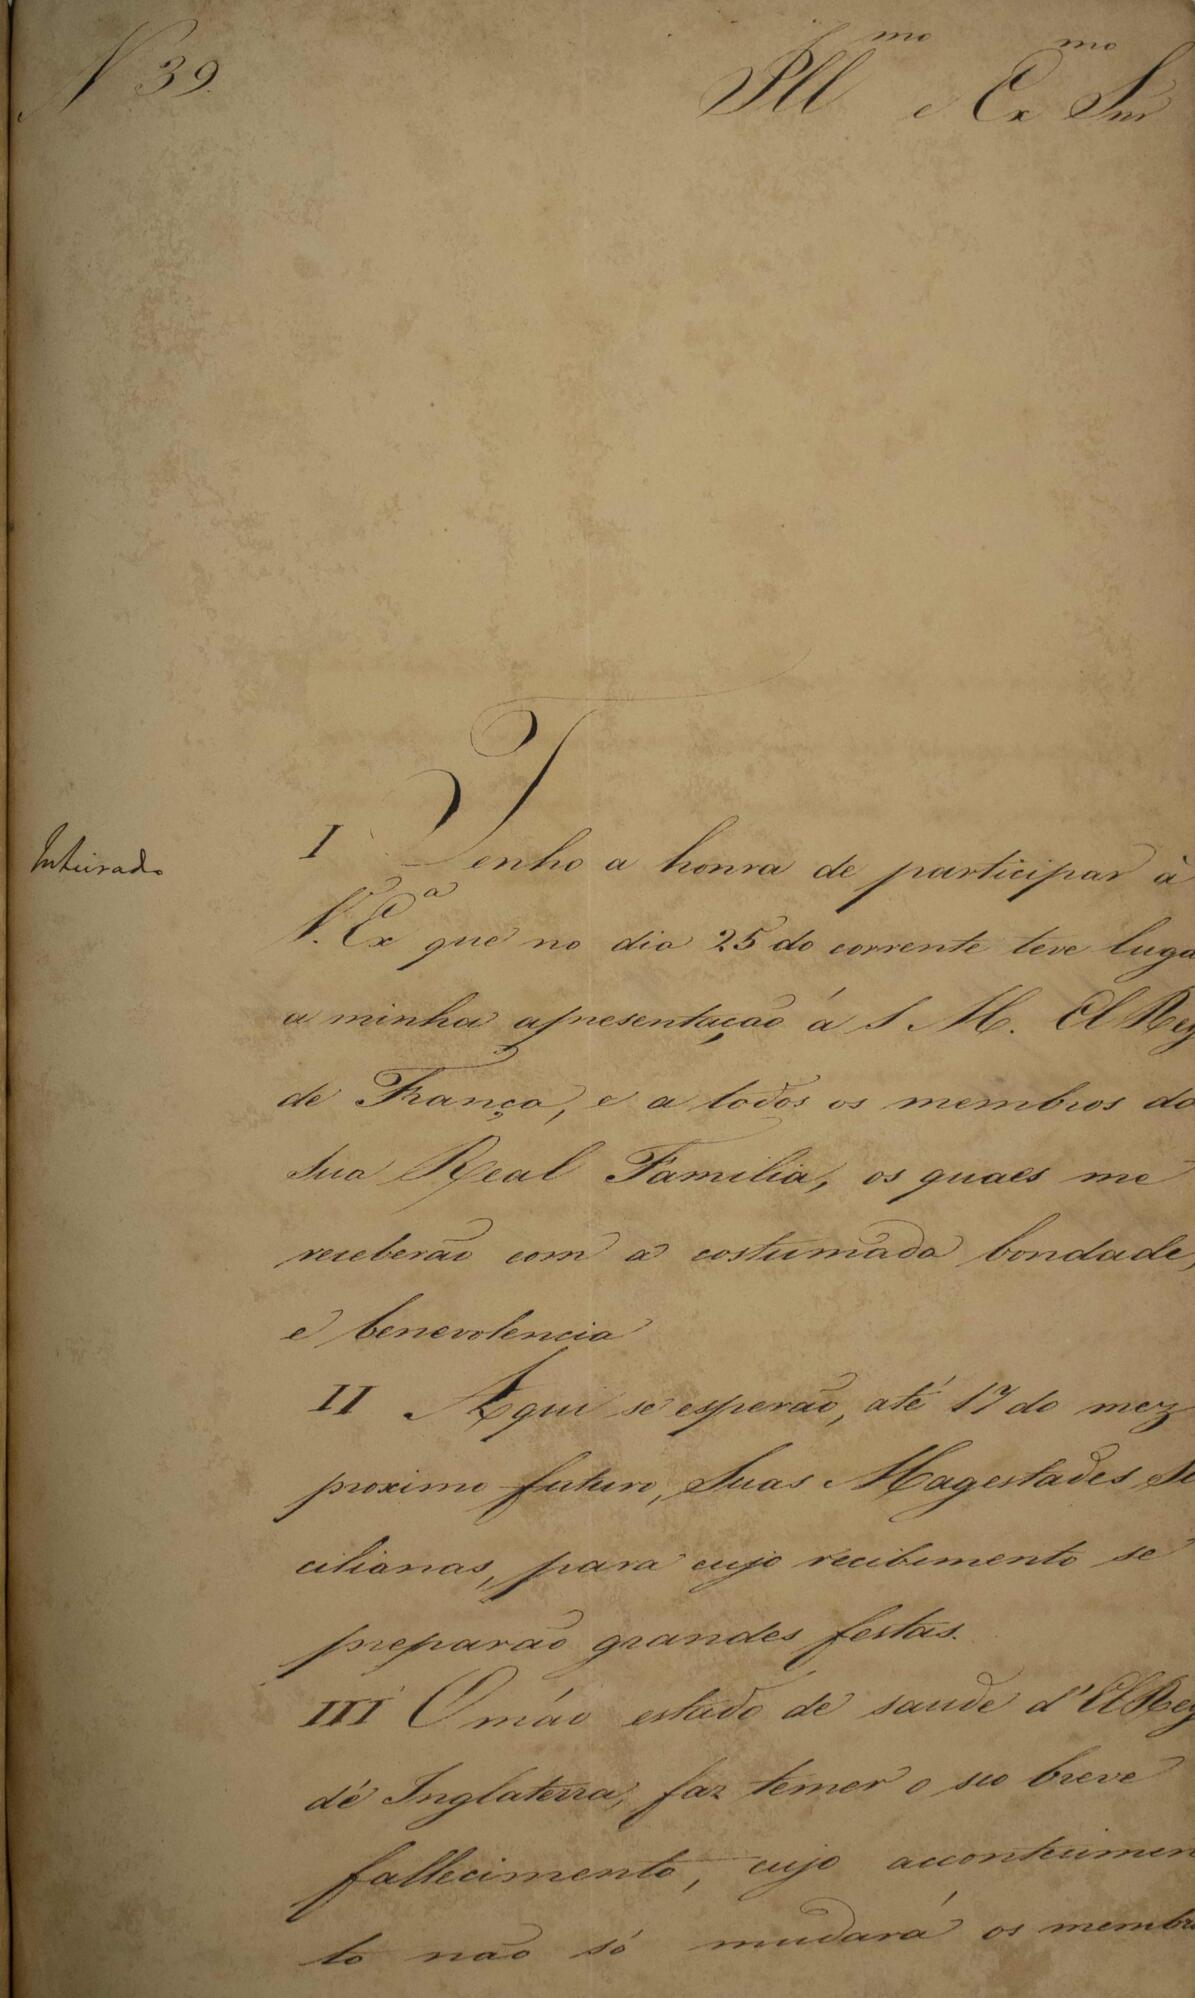 N 39.
Ill^mo e Ex^mo Snr
Inteirado
I Tenho a honra de participar à
V. Ex^a que no dia 25 do corrente teve luga
a minha apresentação á S M. El Rey
de França, e a todos os membros da
sua Real Familia, os quaes me
receberão com a costumada bondade,
e benevolencia
II Aqui se esperão, até 17 do mez
proximo futuro, Suas Magestades Si
cilianas, para cujo recebimento se
preparão grandes festas.
III O máo estado de saude d'El Rey
de Inglaterra, faz temer o seo breve
fallecimento, cujo acontecimen
to não só mudará os membro